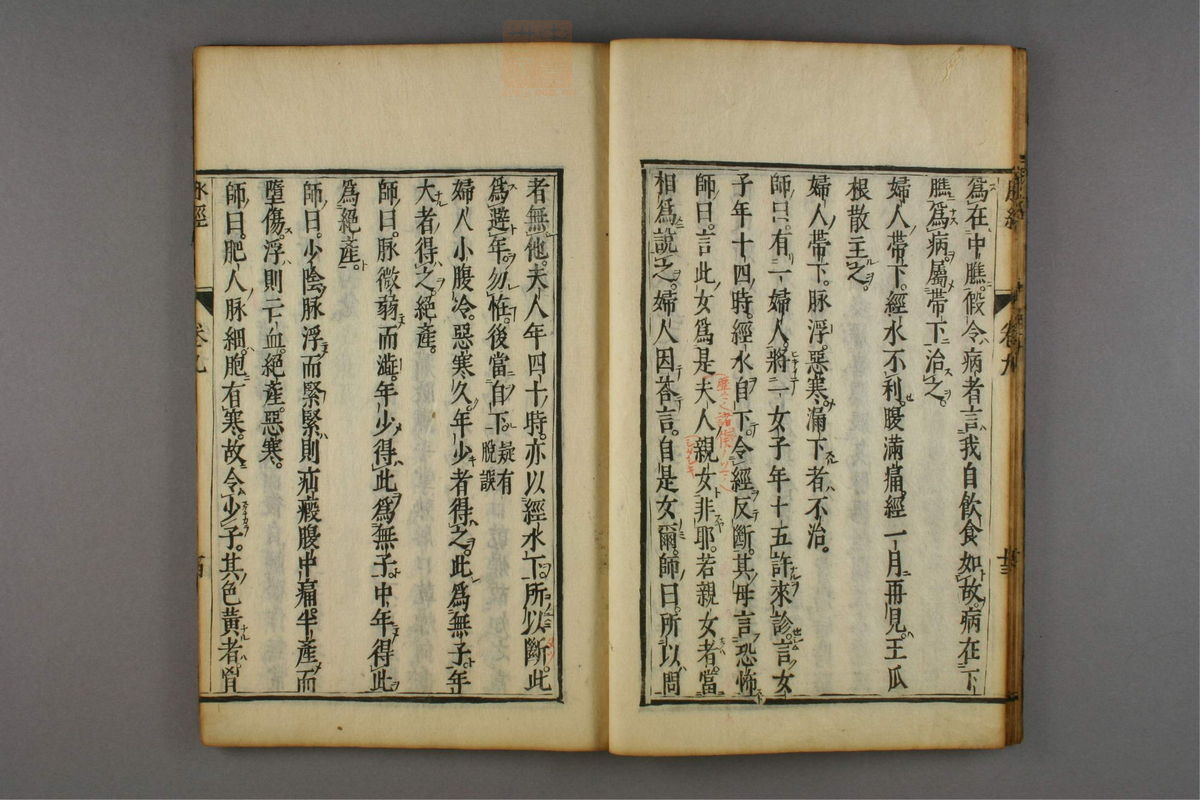 脉經
卷九
為在中膲假令病者言我自飲食如故病在下
膲為病屬帶下治之
婦人帶下經水不利腹滿痛經一月再見王瓜
根散主之
婦人帶下脉浮惡寒漏下者不治
師曰有一婦人將一女子年十五許來診言女
子年十四時經水自下今經反斷其母言恐怖
師曰言此女為是夫人親女非耶若親女者當
相為說之婦人因荅言自是女爾師曰所以問
者無他夫人年四十時亦以經水下所以斷此
為避年勿怪後當自下疑有
脫誤
婦人小腹冷惡寒久年少者得之此為無子年
大者得之絕產
師曰脉微弱而澁年少得此為無子中年得此
為絕產
師曰少陰脉浮而緊緊則疝瘕腹中痛半產而
墮傷浮則亡血絕產惡寒
師曰肥人脉細胞有寒故令少子其色黃者胷
脉經
卷九